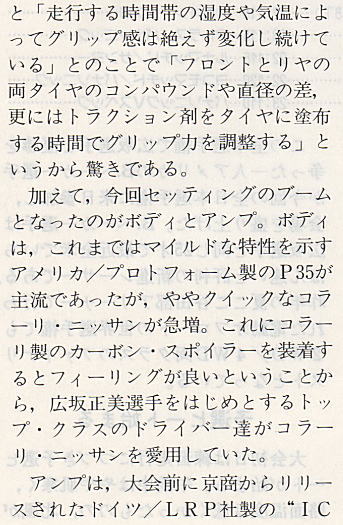 と「走行する時間帯の湿度や気温によ
ってグリップ感は絶えず変化し続けて
いる」とのことで「フロントとリヤの
両タイヤのコンパウンドや直径の差，
更にはトラクション剤をタイヤに塗布
する時間でグリップ力を調整する」と
いうから驚きである。
　加えて，今回セッティングのブーム
となったのがボディとアンプ。ボディ
は，これまではマイルドな特性を示す
アメリカ／プロトフォーム製のP35が
主流であったが，ややクイックなコラ
ーリ・ニッサンが急増。これにコラー
リ製のカーボン・スポイラーを装着す
るとフィーリングが良いということか
ら，広坂正美選手をはじめとするトッ
プ・クラスのドライバー達がコラー
リ・ニッサンを愛用していた。
　アンプは，大会前に京商からリリー
スされたドイツ／LRP社製の“IC